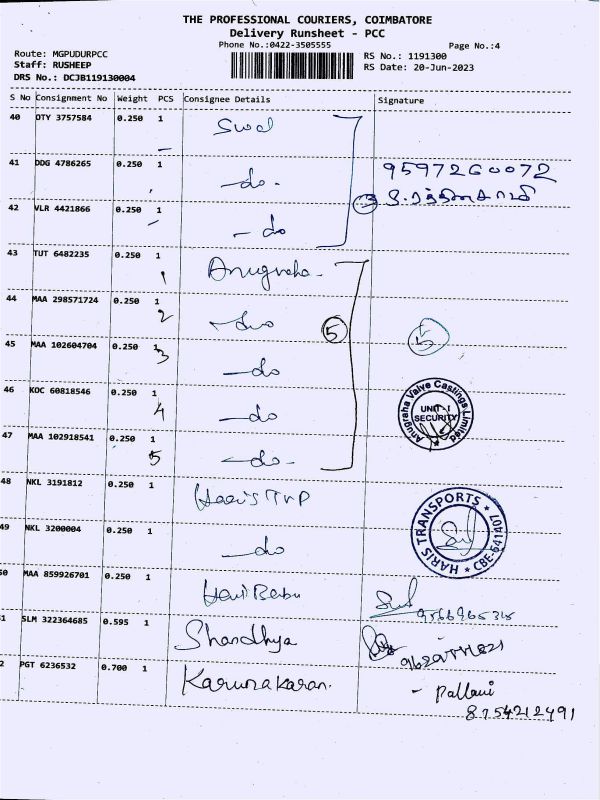 THE PROFESSIONAL COURIERS, COIMBATORE
Delivery Runsheet - PCC
Phone No.:0422-3505555
Page No.:4
Route: MGPUDURPCC
Staff: RUSHEEP
DRS No.: DCJB119130004
RS No.: 1191300
RS Date: 20-Jun-2023
S No Consignment No Weight PCS Consignee Details Signature
40 OTY 3757584 0.250 1
41 DDG 4786265 0.250 1 -do- 9597260072
42 VLR 4421866 0.250 1 -do 3
43 TUT 6482235 0.250 1 1 Anugraha-
44 MAA 298571724 0.250 1 2 -do 5 5
45 MAA 102604704 0.250 1 3 -do
46 KOC 60818546 0.250 1 4 -do
Anugraha Valve Castings Limited
UNIT-I
SECURITY
47 MAA 102918541 0.250 1 5 -do-
48 NKL 3191812 0.250 1 Hari's TVP
HARIS TRANSPORTS
CBE-641407
49 NKL 3200004 0.250 1 -do
50 MAA 859926701 0.250 1 Hari Babu
51 SLM 322364685 0.595 1 Shandhya
52 PGT 6236532 0.700 1 Karunakaran. - Pallavi
8754212491